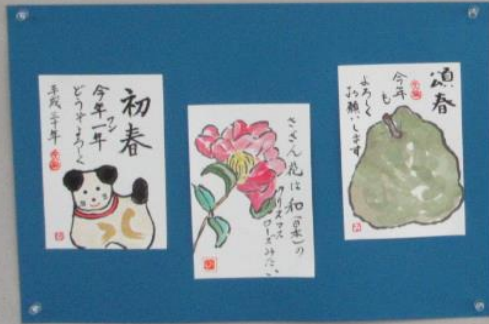 初春
今年一年
ワン
どうぞよろしく
平成三十年
さざん花は和(日本)の
クリスマス
ローズみたい
頌春
今年も
よろしく
お願いします